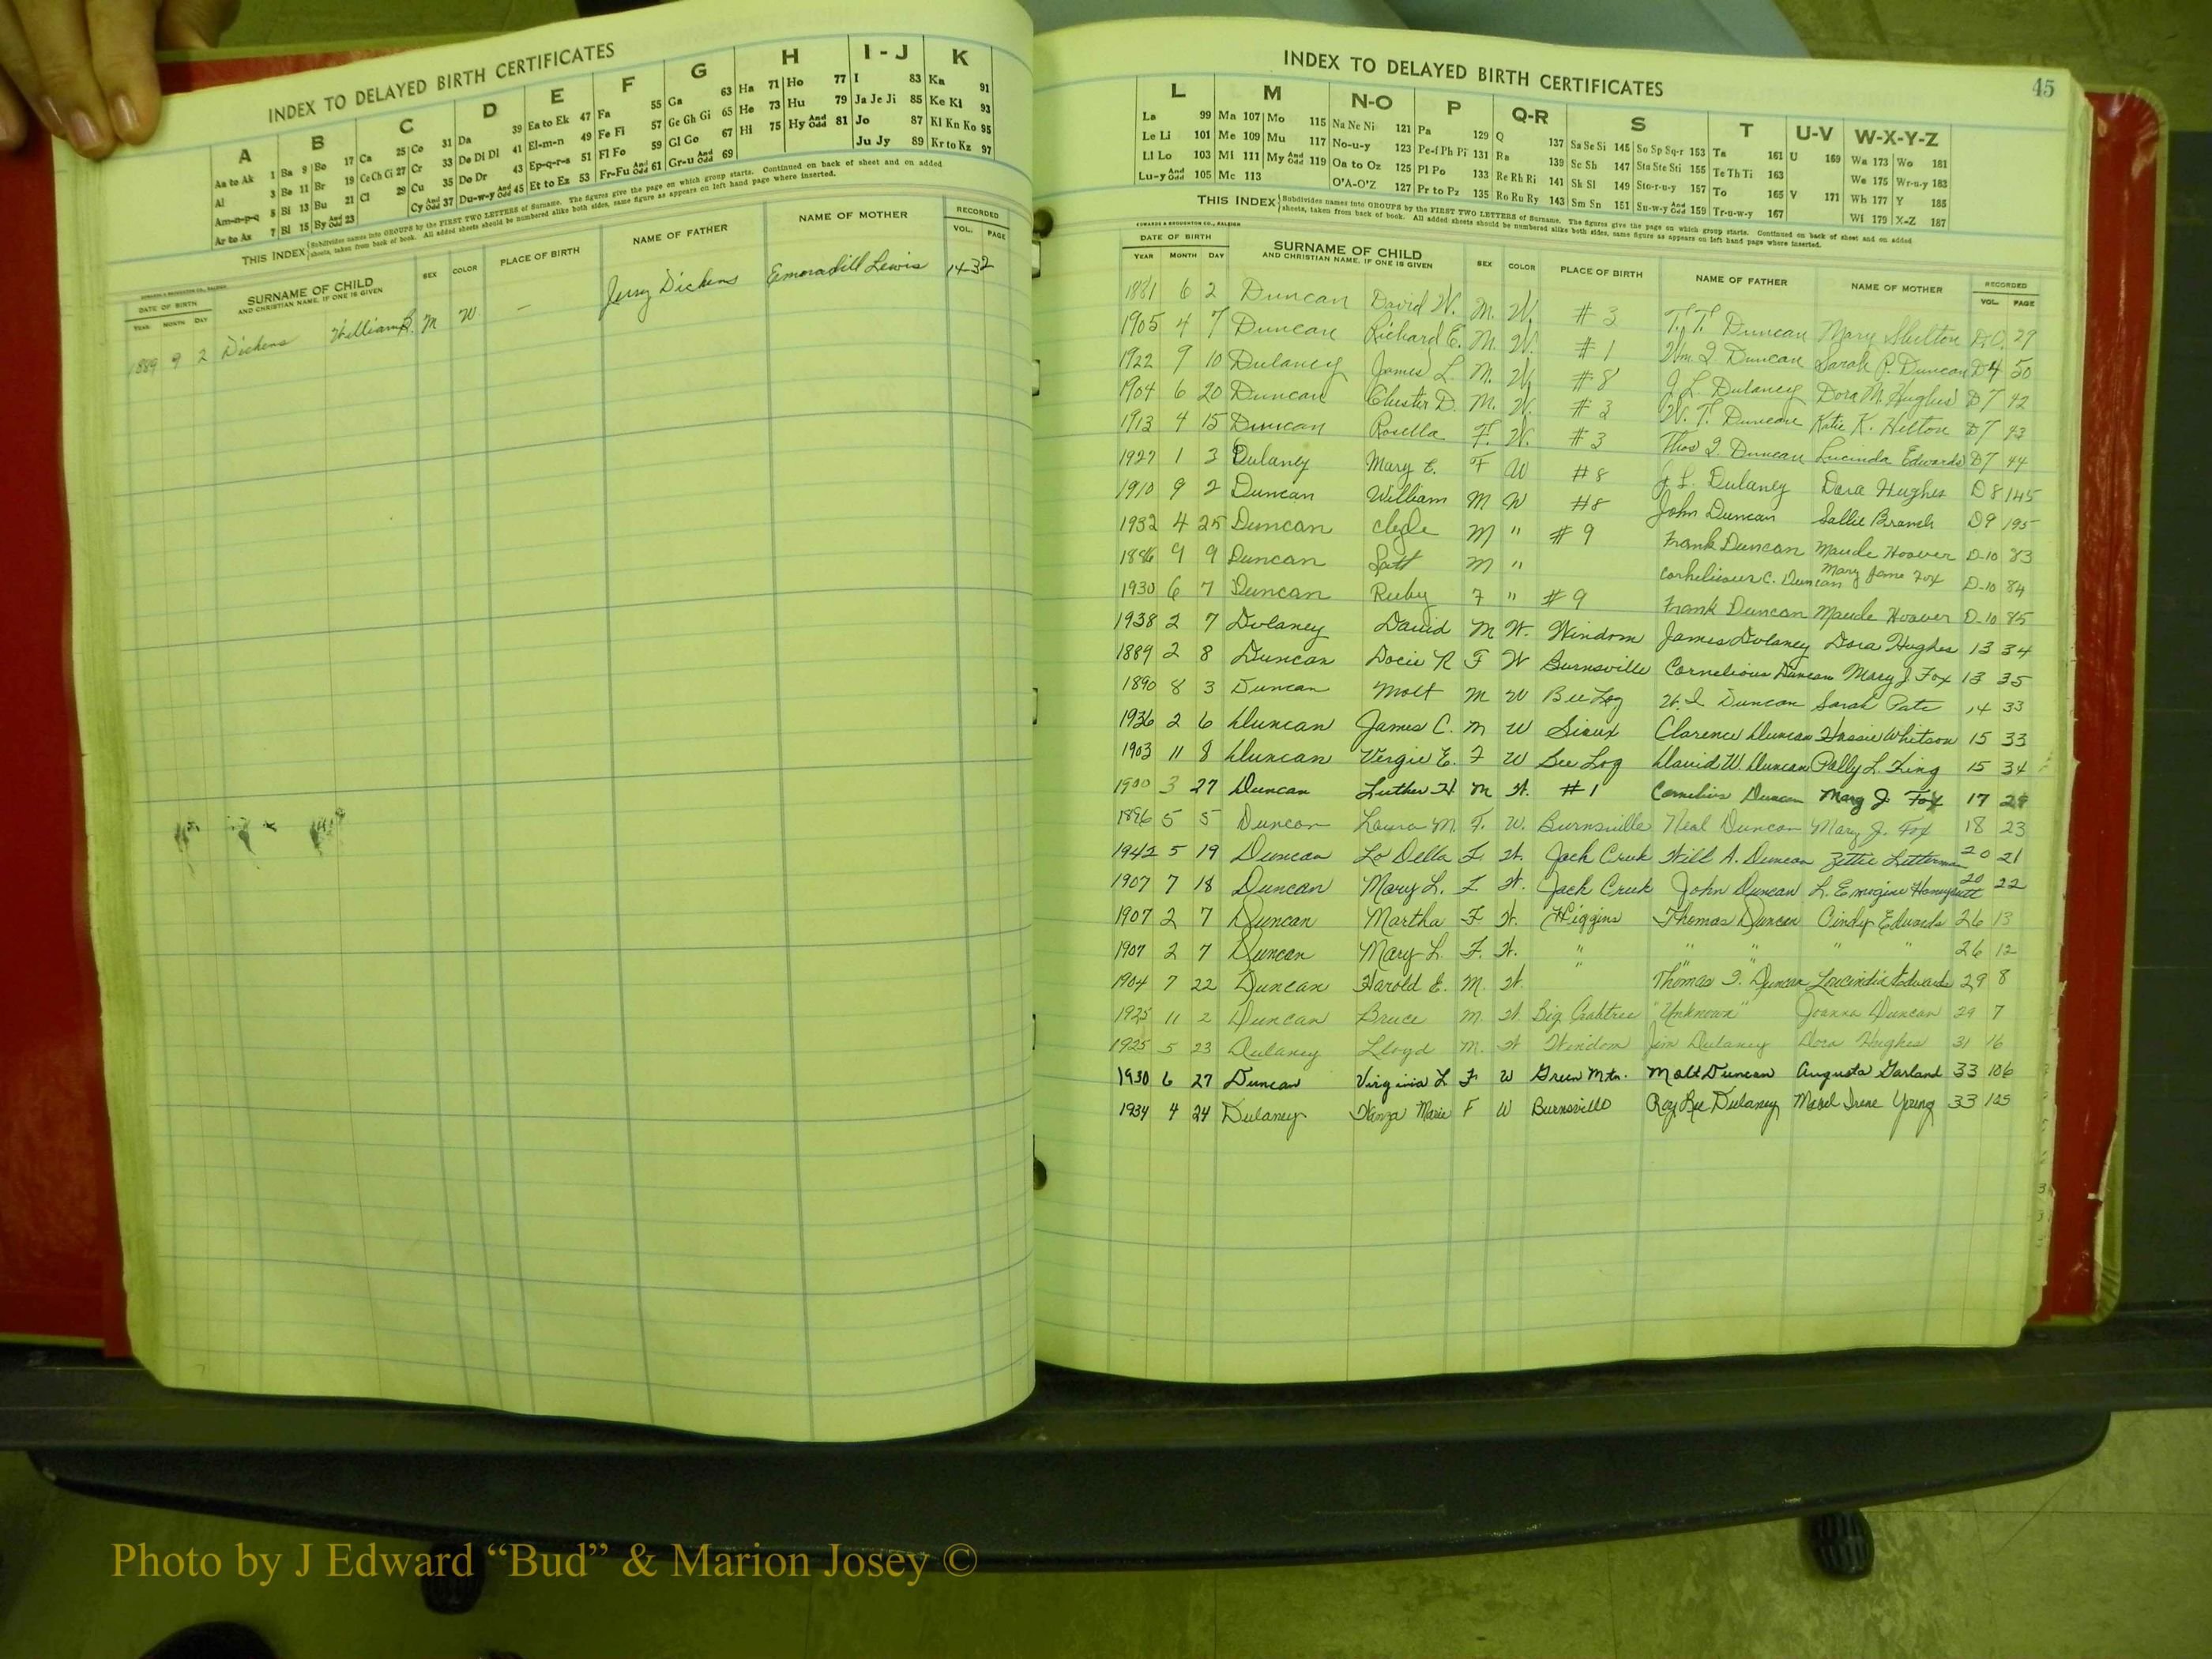 INDEX TO DELAYED BIRTH CERTIFICATES
A B C D E F G H I-J K
Aa to Ak 1 Ba 9 Bo 17 Ca 25 Co 31 Da 39 Ea to Ek 47 Fa 55 Ga 63 Ha 71 Ho 77 I 83 Ka 91
Al 3 Be 11 Br 19 Ce Ch Ci 27 Cr 33 De Di Dl 41 El-m-n 49 Fe Fi 57 Ge Gh Gi 65 He 73 Hu 79 Ja Je Ji 85 Ke Ki 93
Am-n-p-q 5 Bi 13 Bu 21 Cl 29 Cu 35 Do Dr 43 Ep-q-r-s 51 Fl Fo 59 Gl Go 67 Hi 75 Hy And Odd 81 Jo 87 Kl Kn Ko 95
Ar to Az 7 Bl 15 By And Odd 23 Cy And Odd 37 Du-w-y And Odd 45 Et to Ez 53 Fr-Fu And Odd 61 Gr-u And Odd 69 Ju Jy 89 Kr to Kz 97
THIS INDEX Subdivides names into GROUPS by the FIRST TWO LETTERS of Surname. The figures give the page on which group starts. Continued on back of sheet and on added
sheets, taken from back of book. All added sheets should be numbered alike both sides, same figure as appears on left hand page where inserted.
DATE OF BIRTH SURNAME OF CHILD SEX COLOR PLACE OF BIRTH NAME OF FATHER NAME OF MOTHER RECORDED
YEAR MONTH DAY AND CHRISTIAN NAME, IF ONE IS GIVEN VOL. PAGE
1889 9 2 Dickens William B. M W. — Jerry Dickens Lewis 14-32
INDEX TO DELAYED BIRTH CERTIFICATES 45
L M N-O P Q-R S T U-V W-X-Y-Z
La 99 Ma 107 Mo 115 Na Ne Ni 121 Pa 129 Q 137 Sa Se Si 145 So Sp Sq-r 153 Ta 161 U 169 Wa 173 Wo 181
Le Li 101 Me 109 Mu 117 No-u-y 123 Pe-f Ph Pi 131 Ra 139 Sc Sh 147 Sta Ste Sti 155 Te Th Ti 163 We 175 Wr-u-y 183
Ll Lo 103 Mi 111 My And Odd 119 Oa to Oz 125 Pl Po 133 Re Rh Ri 141 Sk Sl 149 Sto-r-u-y 157 To 165 V 171 Wh 177 Y 185
Lu-y And Odd 105 Mc 113 O'A-O'Z 127 Pr to Pz 135 Ro Ru Ry 143 Sm Sn 151 Su-w-y And Odd 159 Tr-u-w-y 167 Wi 179 X-Z 187
THIS INDEX Subdivides names into GROUPS by the FIRST TWO LETTERS of Surname. The figures give the page on which group starts. Continued on back of sheet and on added
sheets, taken from back of book. All added sheets should be numbered alike both sides, same figure as appears on left hand page where inserted.
EDWARDS & BROUGHTON CO., RALEIGH
DATE OF BIRTH SURNAME OF CHILD SEX COLOR PLACE OF BIRTH NAME OF FATHER NAME OF MOTHER RECORDED
YEAR MONTH DAY AND CHRISTIAN NAME, IF ONE IS GIVEN VOL. PAGE
1881 6 2 Duncan David W. M. W. #3 T. T. Duncan Mary Shelton 29
1905 4 7 Duncan Richard E. M. W. #1 Wm. I. Duncan Sarah P. Duncan D4 50
1922 9 10 Dulaney James L. M. W. #8 J. L. Dulaney Dora M. Hughes D7 42
1904 6 20 Duncan Chester D. M. W. #3 W. T. Duncan Katie K. Hilton D7 43
1913 4 15 Duncan Rosella F. W. #3 Thos I. Duncan Lucinda Edwards D7 44
1927 1 3 Dulaney Mary E. F W #8 J. L. Dulaney Dora Hughes D8 145
1910 9 2 Duncan William M W #8 John Duncan Sallie Branch D9 195
1932 4 25 Duncan Clyde M " #9 Frank Duncan Maude Hoover D-10 83
9 9 Duncan M " Cornelious C. Duncan Mary Jane Fox D-10 84
1930 6 7 Duncan Ruby F " #9 Frank Duncan Maude Hoover D-10 85
1938 2 7 Dulaney David M W. Windom James Dulaney Dora Hughes 13 34
1889 2 8 Duncan Docie R F W Burnsville Cornelious Duncan Mary J Fox 13 35
1890 8 3 Duncan Molt M W Bee Log W. I. Duncan Sarah Pate 14 33
1936 2 6 Duncan James C. M W Sioux Clarence Duncan Hassie Whitson 15 33
1903 11 8 Duncan Vergie E. F W Bee Log David W. Duncan Polly L. King 15 34
1900 3 27 Duncan Luther H M W. #1 Cornelius Duncan Mary J. Fox 17 29
1896 5 5 Duncan Laura M. F. W. Burnsville Neal Duncan Mary J. Fox 18 23
1942 5 19 Duncan Lo Della F. W. Jack Creek Will A. Duncan Zettie Letterman 20 21
1907 7 18 Duncan Mary L. F. W. Jack Creek John Duncan L. Emogine Honeycutt 20 22
1907 2 7 Duncan Martha F W. Higgins Thomas Duncan Cindy Edwards 26 13
1907 2 7 Duncan Mary L. F. W. " " " " " 26 12
1904 7 22 Duncan Harold E. M. W. " Thomas I. Duncan Lucindia Edwards 29 8
1925 11 2 Duncan Bruce M. W. Big Crabtree "Unknown" Joanna Duncan 29 7
1925 5 23 Dulaney Lloyd M. W Windom Jim Dulaney Dora Hughes 31 16
1930 6 27 Duncan Virginia L F W Green Mtn. Molt Duncan Augusta Garland 33 106
1934 4 24 Dulaney Wanza Marie F W Burnsville Roy Lee Dulaney Mabel Irene Young 33 125
Photo by J Edward “Bud” & Marion Josey ©